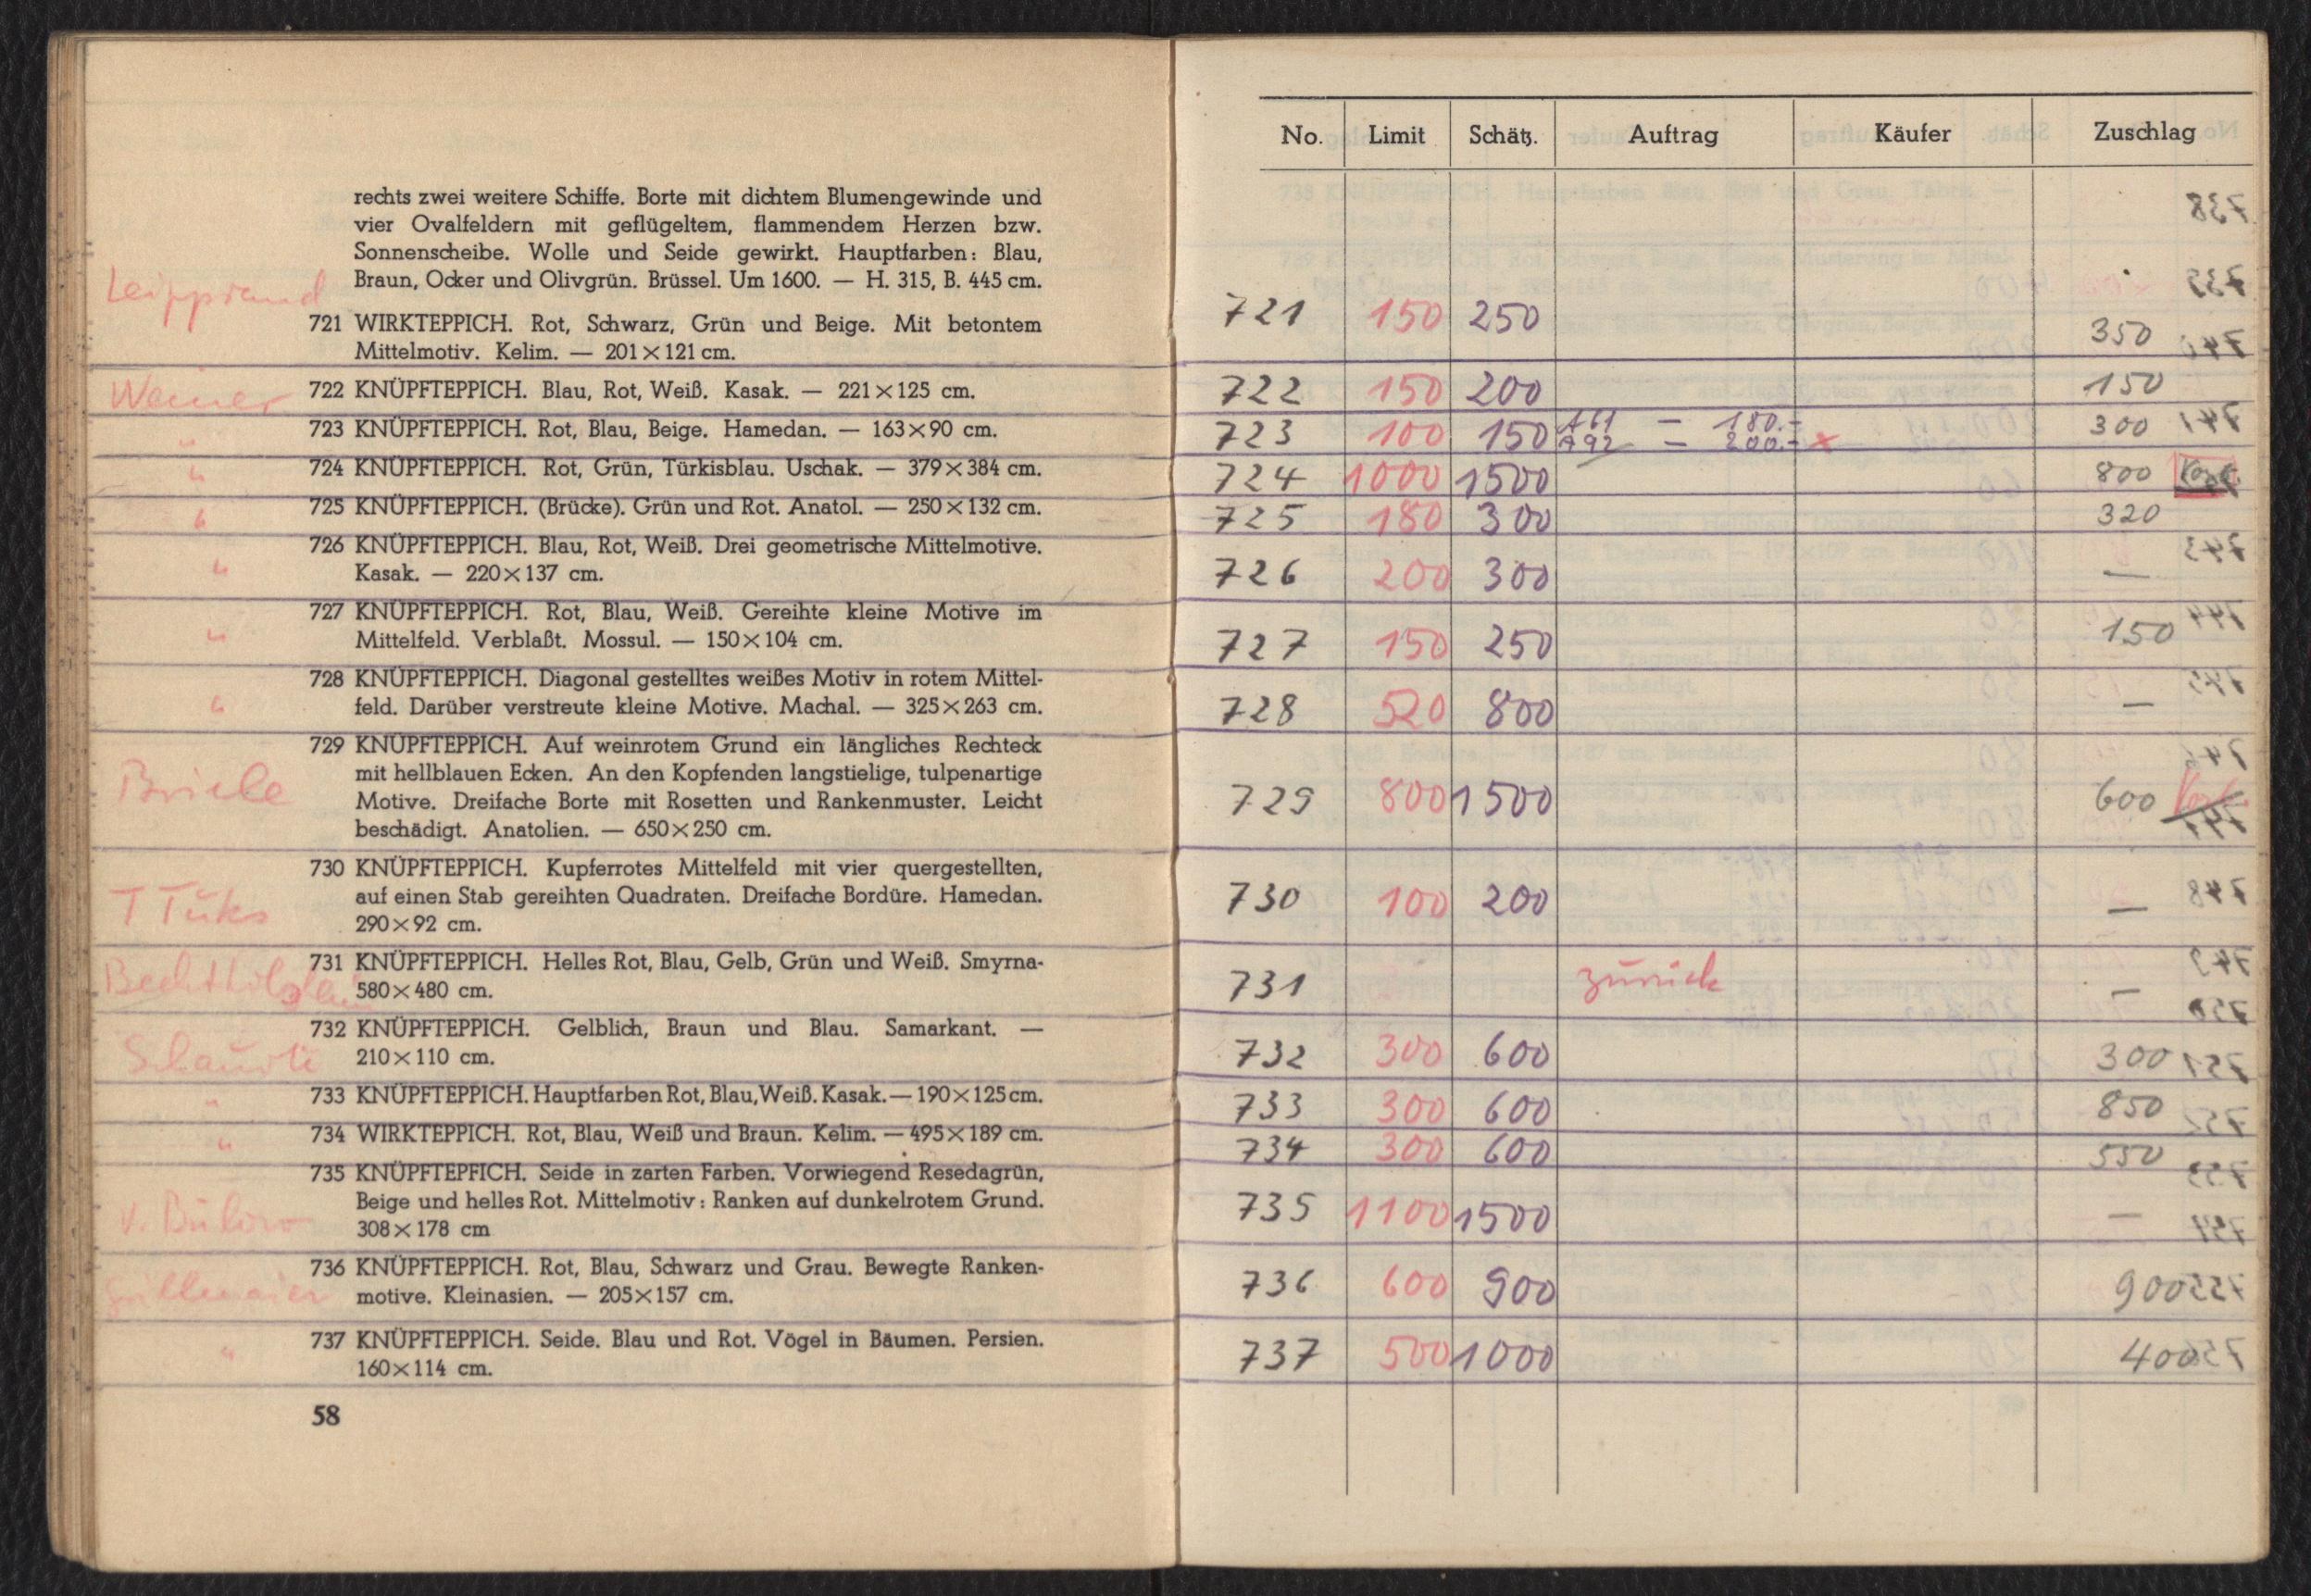 rechts zwei weitere Schiffe. Borte mit dichtem Blumengewinde und
vier Ovalfeldern mit geflügeltem, flammendem Herzen bzw.
Sonnenscheibe. Wolle und Seide gewirkt. Hauptfarben: Blau,
Braun, Ocker und Olivgrün. Brüssel. Um 1600. — H. 315, B. 445 cm.
Leipprand
721 WIRKTEPPICH. Rot, Schwarz, Grün und Beige. Mit betontem
Mittelmotiv. Kelim. — 201×121 cm.
Weiner 722 KNÜPFTEPPICH. Blau, Rot, Weiß. Kasak. — 221×125 cm.
" 723 KNÜPFTEPPICH. Rot, Blau, Beige. Hamedan. — 163×90 cm.
" 724 KNÜPFTEPPICH. Rot, Grün, Türkisblau. Uschak. — 379×384 cm.
" 725 KNÜPFTEPPICH. (Brücke). Grün und Rot. Anatol. — 250×132 cm.
726 KNÜPFTEPPICH. Blau, Rot, Weiß. Drei geometrische Mittelmotive.
" Kasak. — 220×137 cm.
727 KNÜPFTEPPICH. Rot, Blau, Weiß. Gereihte kleine Motive im
" Mittelfeld. Verblaßt. Mossul. — 150×104 cm.
728 KNÜPFTEPPICH. Diagonal gestelltes weißes Motiv in rotem Mittel-
" feld. Darüber verstreute kleine Motive. Machal. — 325×263 cm.
729 KNÜPFTEPPICH. Auf weinrotem Grund ein längliches Rechteck
mit hellblauen Ecken. An den Kopfenden langstielige, tulpenartige
Briele Motive. Dreifache Borte mit Rosetten und Rankenmuster. Leicht
beschädigt. Anatolien. — 650×250 cm.
730 KNÜPFTEPPICH. Kupferrotes Mittelfeld mit vier quergestellten,
auf einen Stab gereihten Quadraten. Dreifache Bordüre. Hamedan.
290×92 cm.
731 KNÜPFTEPPICH. Helles Rot, Blau, Gelb, Grün und Weiß. Smyrna-
580×480 cm.
732 KNÜPFTEPPICH. Gelblich, Braun und Blau. Samarkant. —
210×110 cm.
" 733 KNÜPFTEPPICH. Hauptfarben Rot, Blau, Weiß. Kasak. — 190×125 cm.
" 734 WIRKTEPPICH. Rot, Blau, Weiß und Braun. Kelim. — 495×189 cm.
735 KNÜPFTEPFICH. Seide in zarten Farben. Vorwiegend Resedagrün,
Beige und helles Rot. Mittelmotiv: Ranken auf dunkelrotem Grund.
v. Bülow 308×178 cm
736 KNÜPFTEPPICH. Rot, Blau, Schwarz und Grau. Bewegte Ranken-
motive. Kleinasien. — 205×157 cm.
737 KNÜPFTEPPICH. Seide. Blau und Rot. Vögel in Bäumen. Persien.
" 160×114 cm.
58
No. Limit Schätz. Auftrag Käufer Zuschlag
721 150 250 350
722 150 200 150
723 100 150 A61 — 180.- 300
A92 — 200.- ×
724 1000 1500 800
725 180 300 320
726 200 300 —
727 150 250 150
728 520 800 —
729 800 1500 600
730 100 200 —
731 zurück —
732 300 600 300
733 300 600 850
734 300 600 550
735 1100 1500 —
736 600 900 900
737 500 1000 400